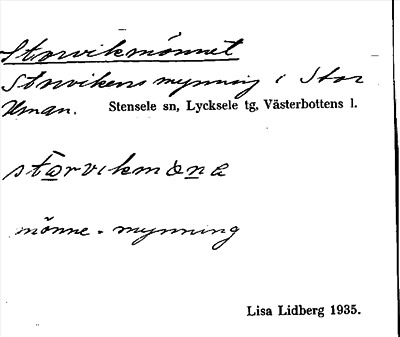 Storvikmönnet
Storvikens mynning i Stor
Uman. Stensele sn, Lycksele tg, Västerbottens l.
storvikmöna
mönne = mynning
Lisa Lidberg 1935.